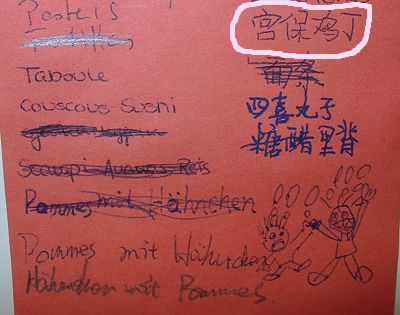 Pastels
Taboule
Couscous-Sushi
Scampi-Ananas-Reis
Pommes mit Hähnchen
Pommes mit Hähnchen
Hähnchen mit Pommes.
宫保鸡丁
面条
四喜丸子
糖醋里背